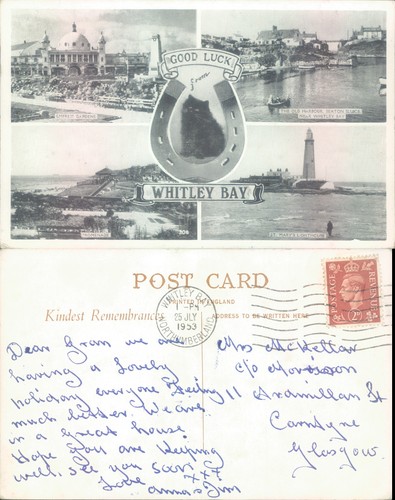 GOOD LUCK
from
WHITLEY BAY
EMPRESS GARDENS
THE OLD HARBOUR, SEATON SLUICE
NEAR WHITLEY BAY
PROMENADE
ST. MARY'S LIGHTHOUSE
POST CARD
PRINTED IN ENGLAND
Kindest Remembrances
ADDRESS TO BE WRITTEN HERE
WHITLEY BAY
1 - PM
25 JLY
1953
NORTHUMBERLAND
POSTAGE
REVENUE
2D
Dear Gran we are
having a lovely
holiday everyone feeling
much better We are
in a great house
Hope you are keeping
well, see you soon.
Love
Anna & Jim
Mrs McKellar
c/o Morrison
11 Ardmillan St
Carntyne
Glasgow.